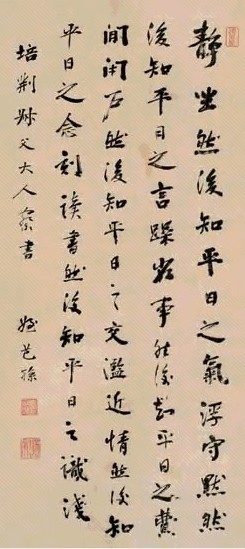 靜坐然後知平日之氣浮守默然
後知平日之言躁省事然後知平日之費
閒閉戶然後知平日之交濫近情然後知
平日之念刻讀書然後知平日之識淺
培荆叔父大人察書
姪芑孫